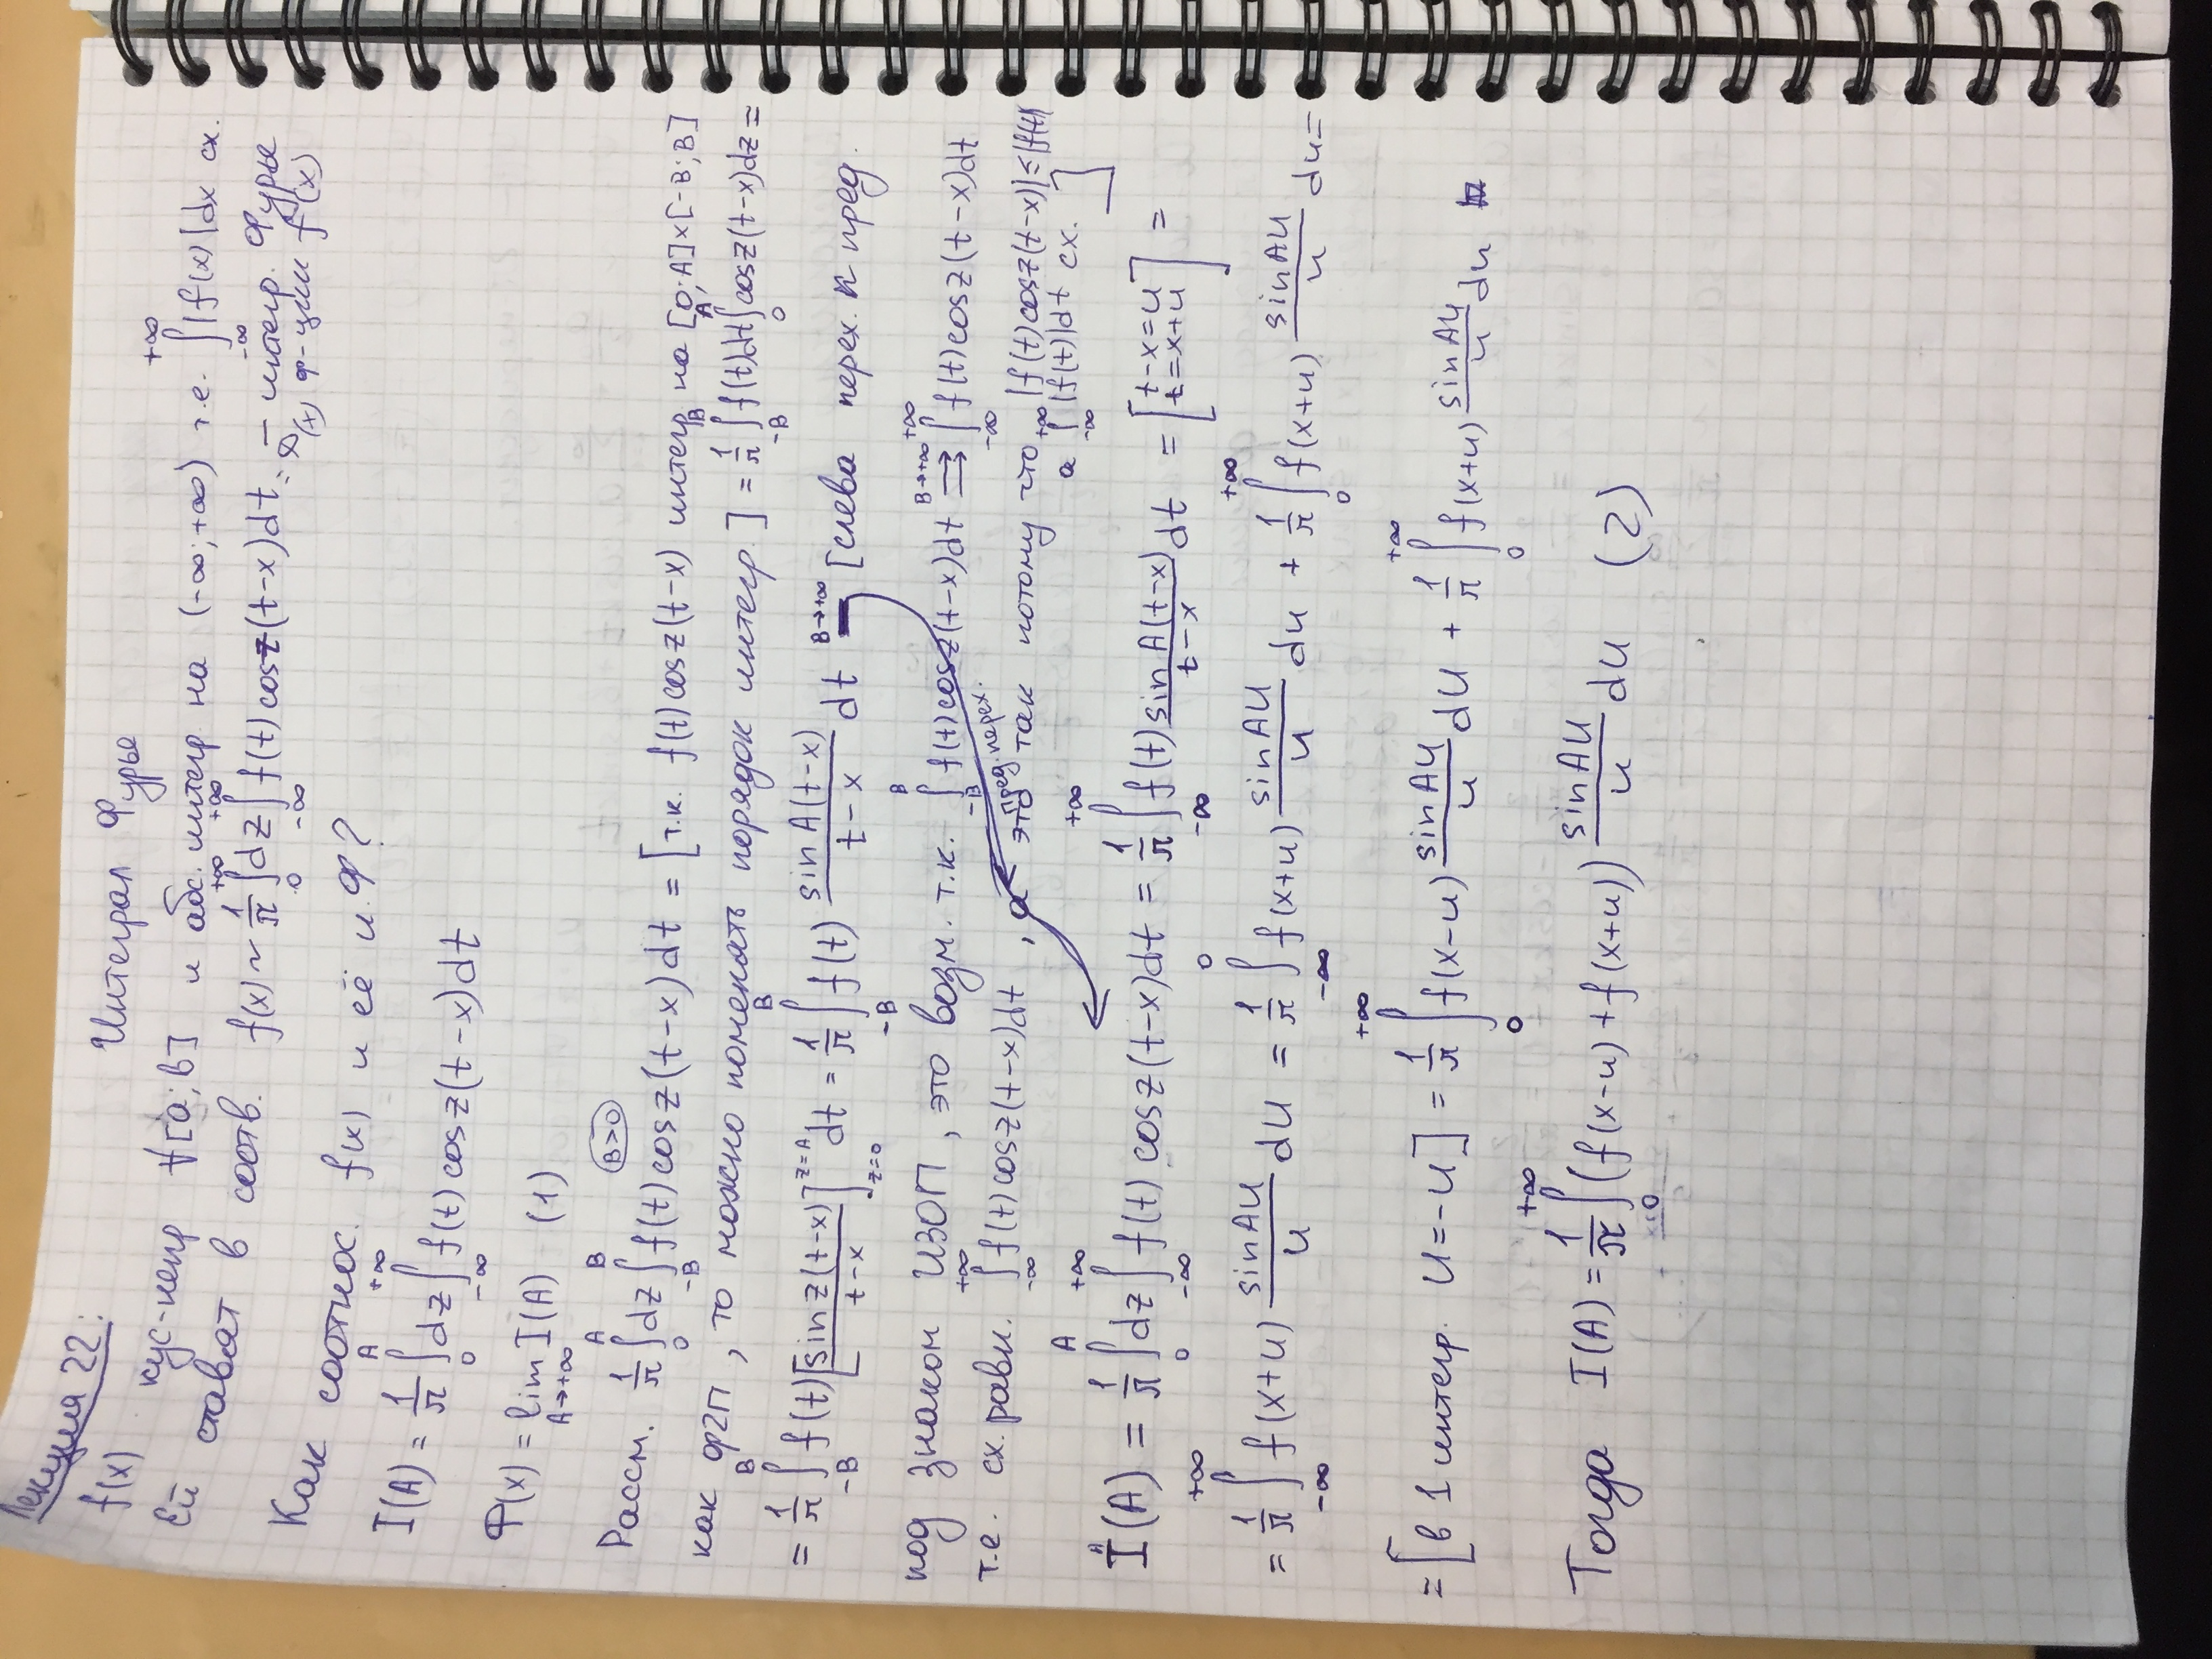 Лекция 22:
Интеграл Фурье
f(x) кус-непр ∀[a;b] и абс. интегр. на (-∞;+∞) т.е. ∫_{-∞}^{+∞}|f(x)|dx сх.
Ей ставят в соотв. f(x) ~ 1/π ∫_0^{+∞}dz∫_{-∞}^{+∞}f(t)cosz(t-x)dt = Φ(x) — интегр. Фурье
ф-ции f(x)
Как соотнос. f(x) и её и.Ф?
I(A) = 1/π ∫_0^A dz∫_{-∞}^{+∞}f(t)cosz(t-x)dt
Φ(x) = lim_{A→+∞} I(A) (1)
Рассм. 1/π ∫_0^A dz∫_{-B}^B f(t)cosz(t-x)dt = [т.к. f(t)cosz(t-x) интегр на [0;A]×[-B;B]
B>0
как Ф2П, то можно поменять порядок интегр.] = 1/π ∫_{-B}^B f(t)dt∫_0^A cosz(t-x)dz =
= 1/π ∫_{-B}^B f(t)[sinz(t-x)/(t-x)]_{z=0}^{z=A} dt = 1/π ∫_{-B}^B f(t) sinA(t-x)/(t-x) dt B→+∞ [слева перех. к пред.
под знаком ИЗОП, это возм. т.к. ∫_{-B}^B f(t)cosz(t-x)dt ⇉^{B→+∞} ∫_{-∞}^{+∞}f(t)cosz(t-x)dt
т.е. сх. равн. ∫_{-∞}^{+∞}f(t)cosz(t-x)dt, а это так потому что |f(t)cosz(t-x)|≤|f(t)|
пред. перех.
а ∫_{-∞}^{+∞}|f(t)|dt сх. ]
I(A) = 1/π ∫_0^A dz∫_{-∞}^{+∞}f(t)cosz(t-x)dt = 1/π ∫_{-∞}^{+∞}f(t) sinA(t-x)/(t-x) dt = [t-x=u t=x+u] =
= 1/π ∫_{-∞}^{+∞}f(x+u) sinAu/u du = 1/π ∫_{-∞}^0 f(x+u) sinAu/u du + 1/π ∫_0^{+∞}f(x+u) sinAu/u du =
= [в 1 интегр. u=-u] = 1/π ∫_0^{+∞}f(x-u) sinAu/u du + 1/π ∫_0^{+∞}f(x+u) sinAu/u du
Тогда I(A) = 1/π ∫_0^{+∞}(f(x-u)+f(x+u)) sinAu/u du (2)